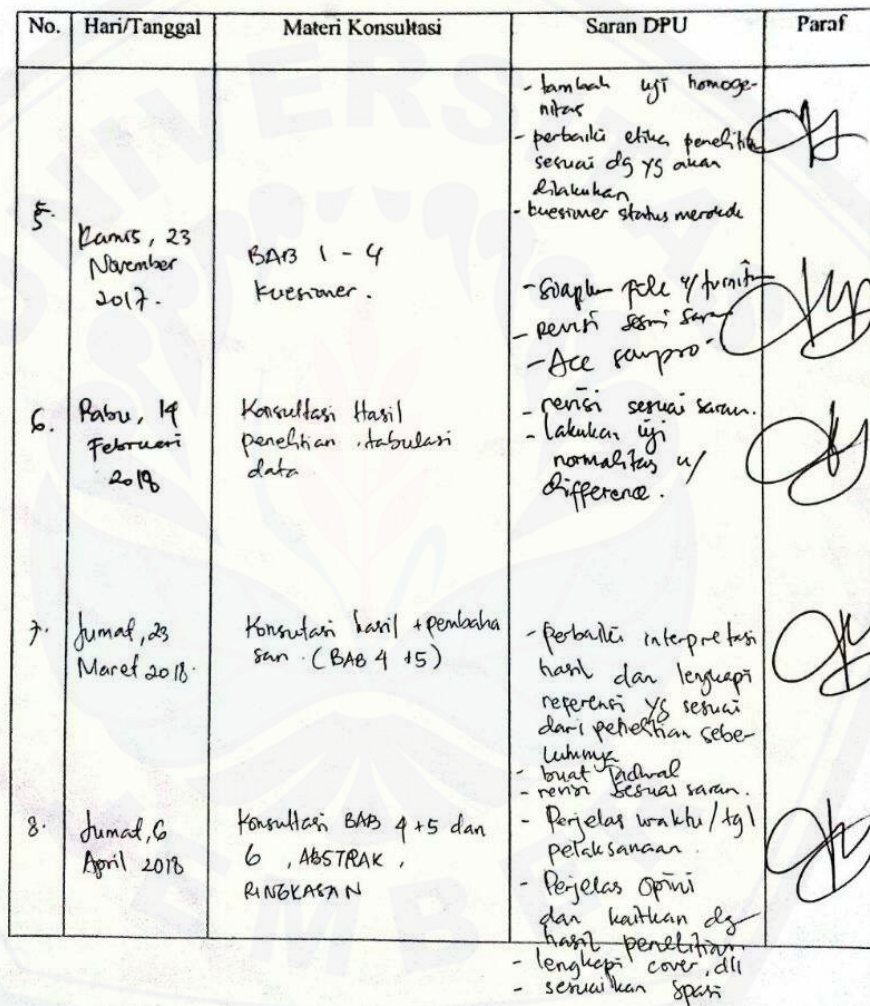 No. Hari/Tanggal Materi Konsultasi Saran DPU Paraf
- tambah uji homoge-
nitas
- perbaiki etika penelitian
sesuai dg yg akan
dilakukan
- kuesioner status merokok
5.
Kamis, 23
November
2017.
BAB 1 - 4
kuesioner.
- siapkan file u/ turnitin
- revisi sesuai saran
- Acc sempro
6.
Rabu, 14
Februari
2018
Konsultasi Hasil
penelitian, tabulasi
data
- revisi sesuai saran.
- lakukan uji
normalitas u/
difference.
7.
Jumat, 23
Maret 2018.
Konsultasi hasil + pembaha
san. (BAB 4 + 5)
- perbaiki interpretasi
hasil dan lengkapi
referensi yg sesuai
dari penelitian sebe-
lumnya
- buat jadwal
- revisi sesuai saran.
8.
Jumat, 6
April 2018
Konsultasi BAB 4 + 5 dan
6, ABSTRAK,
RINGKASAN
- Perjelas waktu / tgl
pelaksanaan.
- Perjelas opini
dan kaitkan dg
hasil penelitian.
- lengkapi cover, dll
- sesuaikan spasi